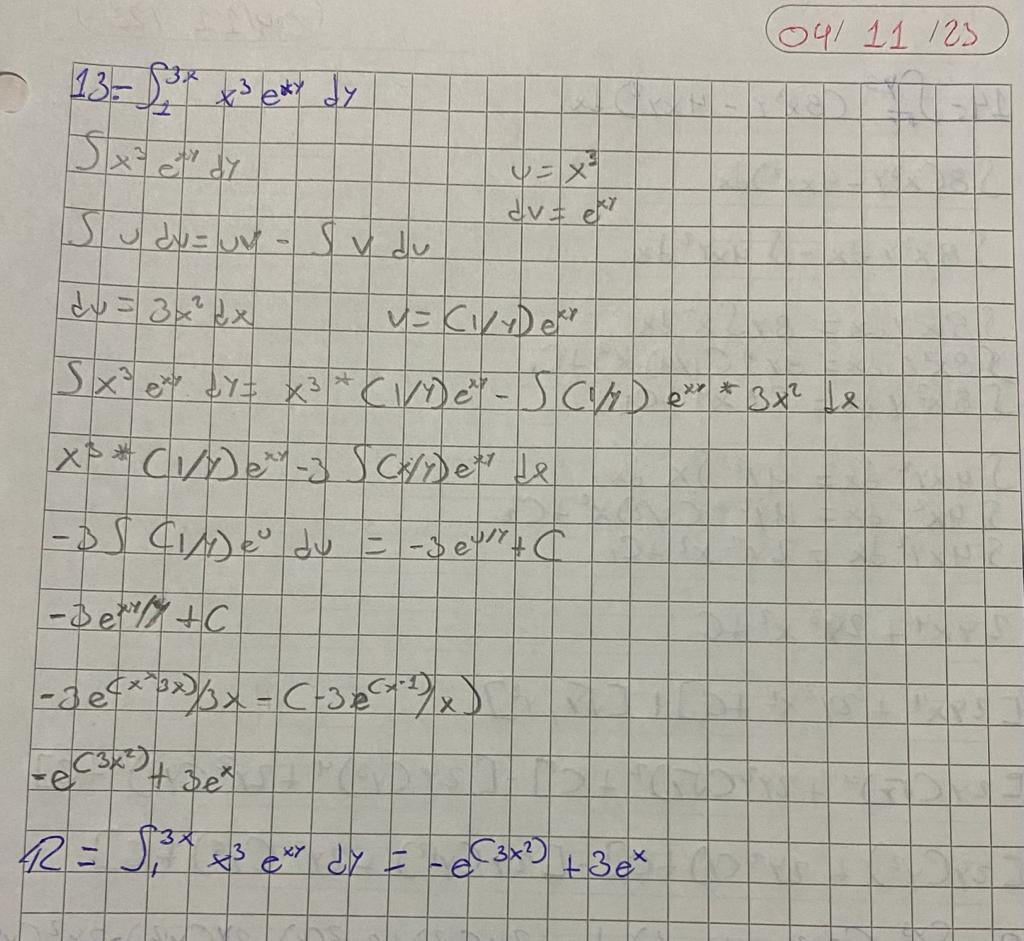 04/ 11 /23
13- ∫₁³ˣ x³ eˣʸ dy
∫ x³ eˣʸ dy u = x³
dv = eˣʸ
∫ u dv = uv - ∫ v du
du = 3x² dx v = (1/y) eˣʸ
∫ x³ eˣʸ dy = x³ * (1/y) eˣʸ - ∫ (1/y) eˣʸ * 3x² dx
x³ * (1/y) eˣʸ - 3 ∫ (x/y) eˣʸ dx
-3 ∫ (1/y) eᵘ du = -3 e^(u/y) + C
-3 eˣʸ/y + C
-3 e^(x*3x)/3x - (-3 e^(x·1)/x)
-e^(3x²) + 3eˣ
R = ∫₁³ˣ x³ eˣʸ dy = -e^(3x²) + 3eˣ